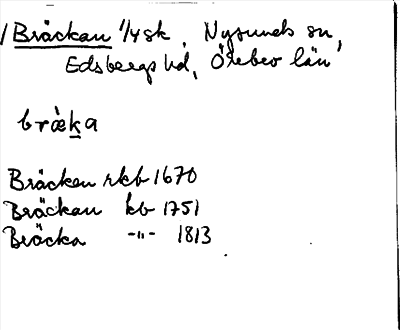 /Bräckan 1/4 sk, Nysunds sn,
Edsbergs hd, Örebro län
bræ̀ka
Bräckan rkb 1670
Bräckan kb 1751
Bräcka -"- 1813